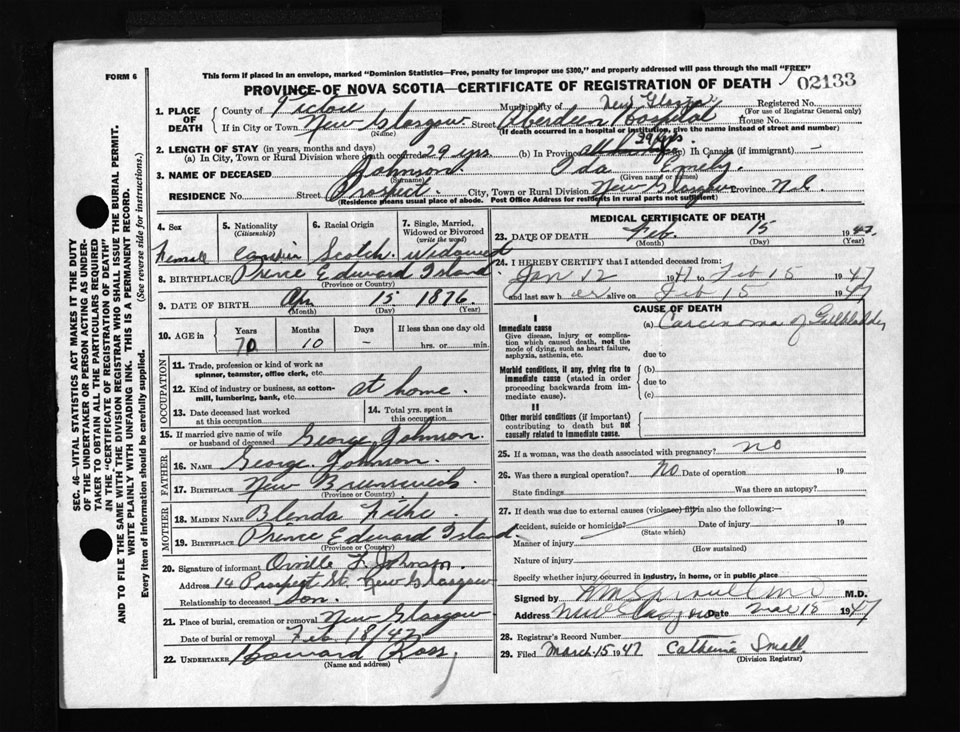 FORM 6
This form if placed in an envelope, marked "Dominion Statistics—Free, penalty for improper use $300," and properly addressed will pass through the mail "FREE"
PROVINCE OF NOVA SCOTIA—CERTIFICATE OF REGISTRATION OF DEATH
02133
1. PLACE OF DEATH
County of Pictou Municipality of New Glasgow Registered No.
(For use of Registrar General only)
If in City or Town New Glasgow Street Aberdeen Hospital House No.
(Name) (If death occurred in a hospital or institution, give the name instead of street and number)
2. LENGTH OF STAY (in years, months and days)
(a) In City, Town or Rural Division where death occurred 29 yrs. (b) In Province 29 yrs. (c) In Canada (if immigrant) —
3. NAME OF DECEASED Johnson Ida Emely
(Surname) (Given name or names)
RESIDENCE No. Street Prospect. City, Town or Rural Division New Glasgow Province N.S.
(Residence means usual place of abode. Post Office Address for residents in rural parts not sufficient)
4. Sex Female
5. Nationality (Citizenship) Canadian
6. Racial Origin Scotch
7. Single, Married, Widowed or Divorced (write the word) widowed
8. BIRTHPLACE Prince Edward Island
(Province or Country)
9. DATE OF BIRTH Ap 15 1876
(Month) (Day) (Year)
10. AGE in Years Months Days If less than one day old
70 10 – hrs. or min.
OCCUPATION
11. Trade, profession or kind of work as spinner, teamster, office clerk, etc.
12. Kind of industry or business, as cotton-mill, lumbering, bank, etc. at home.
13. Date deceased last worked at this occupation
14. Total yrs. spent in this occupation
15. If married give name of wife or husband of deceased George Johnson.
FATHER
16. NAME George Johnson.
17. BIRTHPLACE New Brunswick
(Province or Country)
MOTHER
18. MAIDEN NAME Blenda
19. BIRTHPLACE Prince Edward Island.
(Province or Country)
20. Signature of informant Orville F. Johnson.
Address 14 Prospect St. New Glasgow
Relationship to deceased Son.
21. Place of burial, cremation or removal New Glasgow
Date of burial or removal Feb 18/47
22. UNDERTAKER Howard Ross
(Name and address)
MEDICAL CERTIFICATE OF DEATH
23. DATE OF DEATH Feb. 15 1947.
(Month) (Day) (Year)
24. I HEREBY CERTIFY that I attended deceased from:
Jan 12 1947 to Feb 15 1947
and last saw h er alive on Feb 15 1947
CAUSE OF DEATH
I
Immediate cause
Give disease, injury or complication which caused death, not the mode of dying, such as heart failure, asphyxia, asthenia, etc.
(a) Carcinoma of Gallbladder
due to
Morbid conditions, if any, giving rise to immediate cause (stated in order proceeding backwards from immediate cause).
(b)
due to
(c)
II
Other morbid conditions (if important) contributing to death but not causally related to immediate cause.
25. If a woman, was the death associated with pregnancy? no
26. Was there a surgical operation? No Date of operation 19
State findings Was there an autopsy?
27. If death was due to external causes (violence) fill in also the following:—
Accident, suicide or homicide? Date of injury 19
(State which)
Manner of injury
(How sustained)
Nature of injury
Specify whether injury occurred in industry, in home, or in public place
Signed by M.D.
Address New Glasgow Date Mar 18 1947
28. Registrar's Record Number
29. Filed March 15 1947 Catherine Small
(Division Registrar)
SEC. 46—VITAL STATISTICS ACT MAKES IT THE DUTY
OF THE UNDERTAKER OR PERSON ACTING AS UNDERTAKER TO OBTAIN ALL THE PARTICULARS REQUIRED
IN THE "CERTIFICATE OF REGISTRATION OF DEATH"
AND TO FILE THE SAME WITH THE DIVISION REGISTRAR WHO SHALL ISSUE THE BURIAL PERMIT.
WRITE PLAINLY WITH UNFADING INK. THIS IS A PERMANENT RECORD.
Every item of information should be carefully supplied. (See reverse side for instructions.)